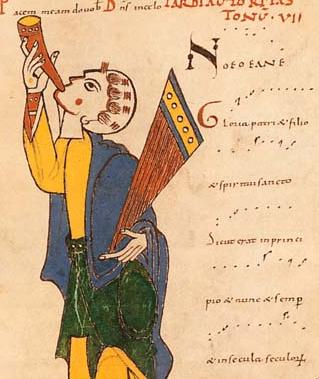 acem meam do vob D ns in celo
TONU · VII
NOEOEANE
Gloria patri & filio
& spiritui sancto
Sicut erat in princi
pio & nunc & semp
& in secula seculorum